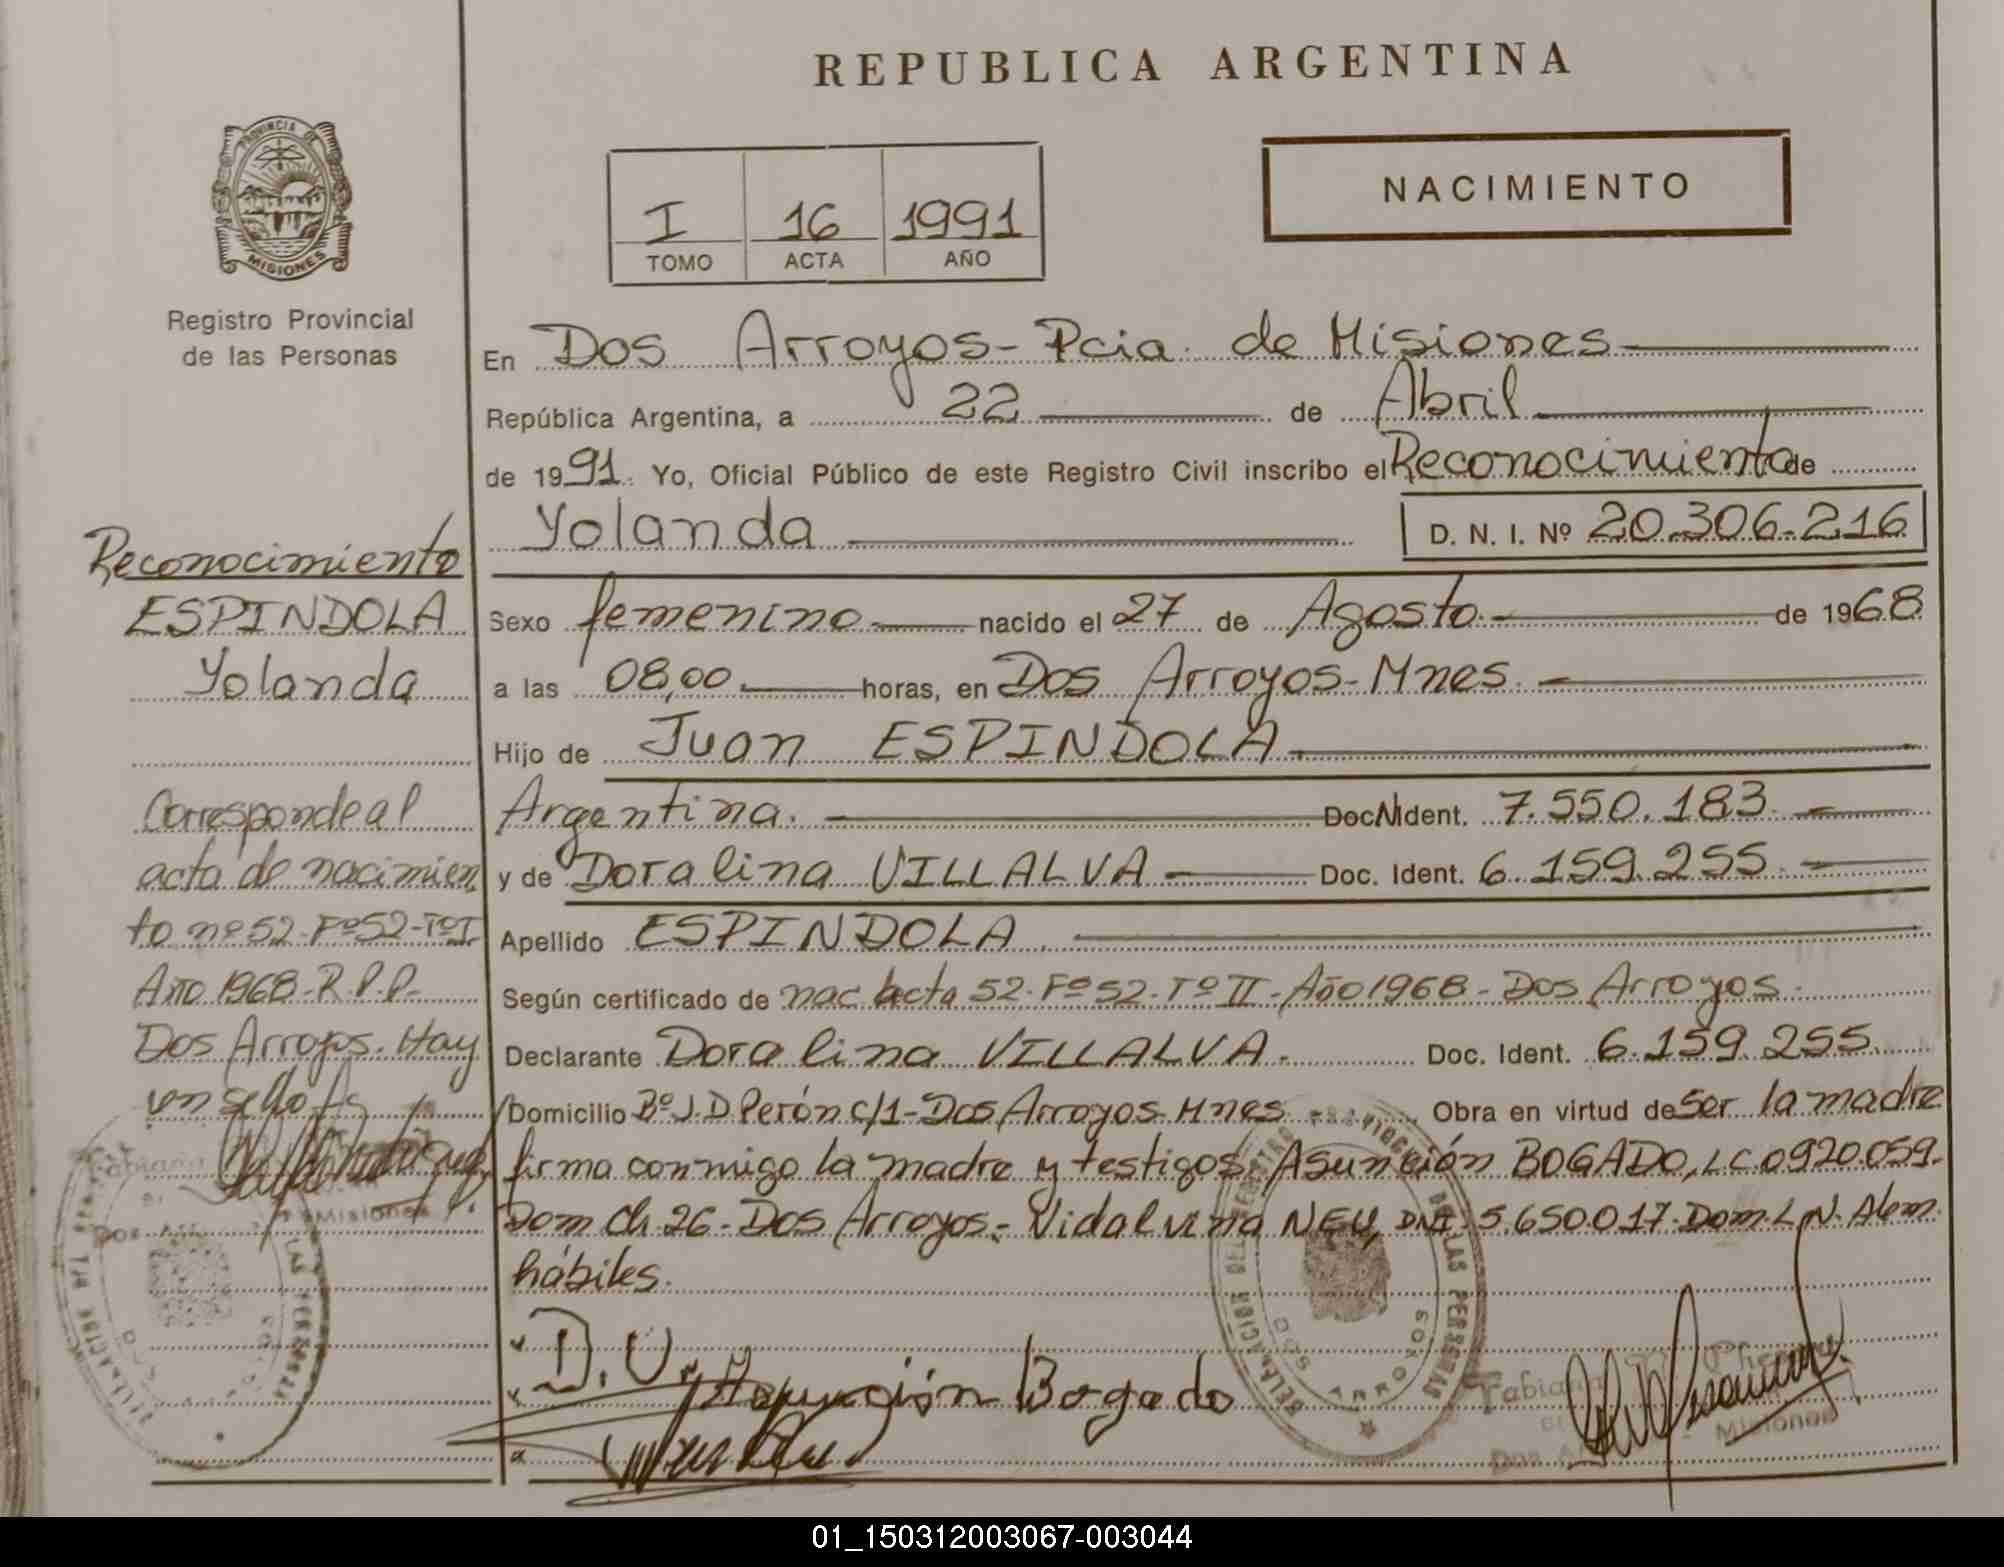 REPUBLICA ARGENTINA
PROVINCIA DE
MISIONES
Registro Provincial
de las Personas
I 16 1991
TOMO ACTA AÑO
NACIMIENTO
En Dos Arroyos - Pcia. de Misiones
República Argentina, a 22 de Abril
de 1991. Yo, Oficial Público de este Registro Civil inscribo el Reconocimiento de
Yolanda D. N. I. Nº 20.306.216
Sexo femenino nacido el 27 de Agosto de 1968
a las 08,00 horas, en Dos Arroyos - Mnes.
Hijo de Juan ESPINDOLA
Argentina. Doc. Ident. 7.550.183
y de Doralina VILLALVA Doc. Ident. 6.159.255
Apellido ESPINDOLA
Según certificado de nac. acta 52. Fº 52. Tº II - Año 1968 - Dos Arroyos.
Declarante Doralina VILLALVA. Doc. Ident. 6.159.255
Domicilio Bº J.D. Perón c/1 - Dos Arroyos Mnes - Obra en virtud de Ser la madre
firma conmigo la madre y testigos, Asunción BOGADO, LC 0920.059.
Dom Ch. 26 - Dos Arroyos. - Vidalvina NEU, DNI. 5.650.017. Dom. L.N. Alem.
hábiles.
D. V.
Asunción Bogado
Reconocimiento
ESPINDOLA
Yolanda
Corresponde al
acta de nacimien
to nº 52. Fº 52 - Tº I
Año 1968. R.P.P.
Dos Arroyos. Hay
un sello
Fabiana
Misiones
DELEGACION DEL REGISTRO PROVINCIAL DE LAS PERSONAS
DOS ARROYOS
Fabiana
Misiones
01_150312003067-003044